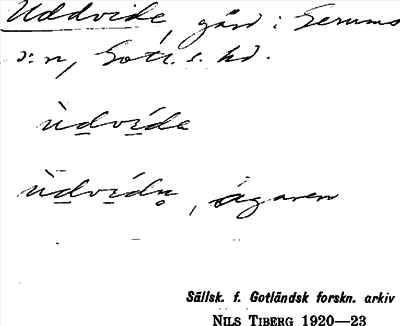 Uddvide, gård i Gerums
s:n, Gotl. s. hd.
ùdvíde
ùdvídu̥, ägaren
Sällsk. f. Gotländsk forskn. arkiv
NILS TIBERG 1920—23